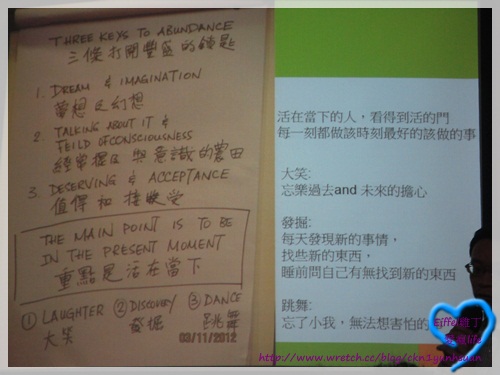 THREE KEYS TO ABUNDANCE
三條打開豐盛的鑰匙
1. DREAM & IMAGINATION
夢想及幻想
2. TALKING ABOUT IT &
FEILD OF CONSCIOUSNESS
經常提及與意識的農田
3. DESERVING & ACCEPTANCE
值得和接受
THE MAIN POINT IS TO BE
IN THE PRESENT MOMENT
重點是活在當下
① LAUGHTER ② DISCOVERY ③ DANCE
大笑 發掘 跳舞
03/11/2012
活在當下的人，看得到活的門
每一刻都做該時刻最好的該做的事
大笑:
忘樂過去and 未來的擔心
發掘:
每天發現新的事情，
找些新的東西，
睡前問自己有無找到新的東西
跳舞:
忘了小我，無法想害怕的
life